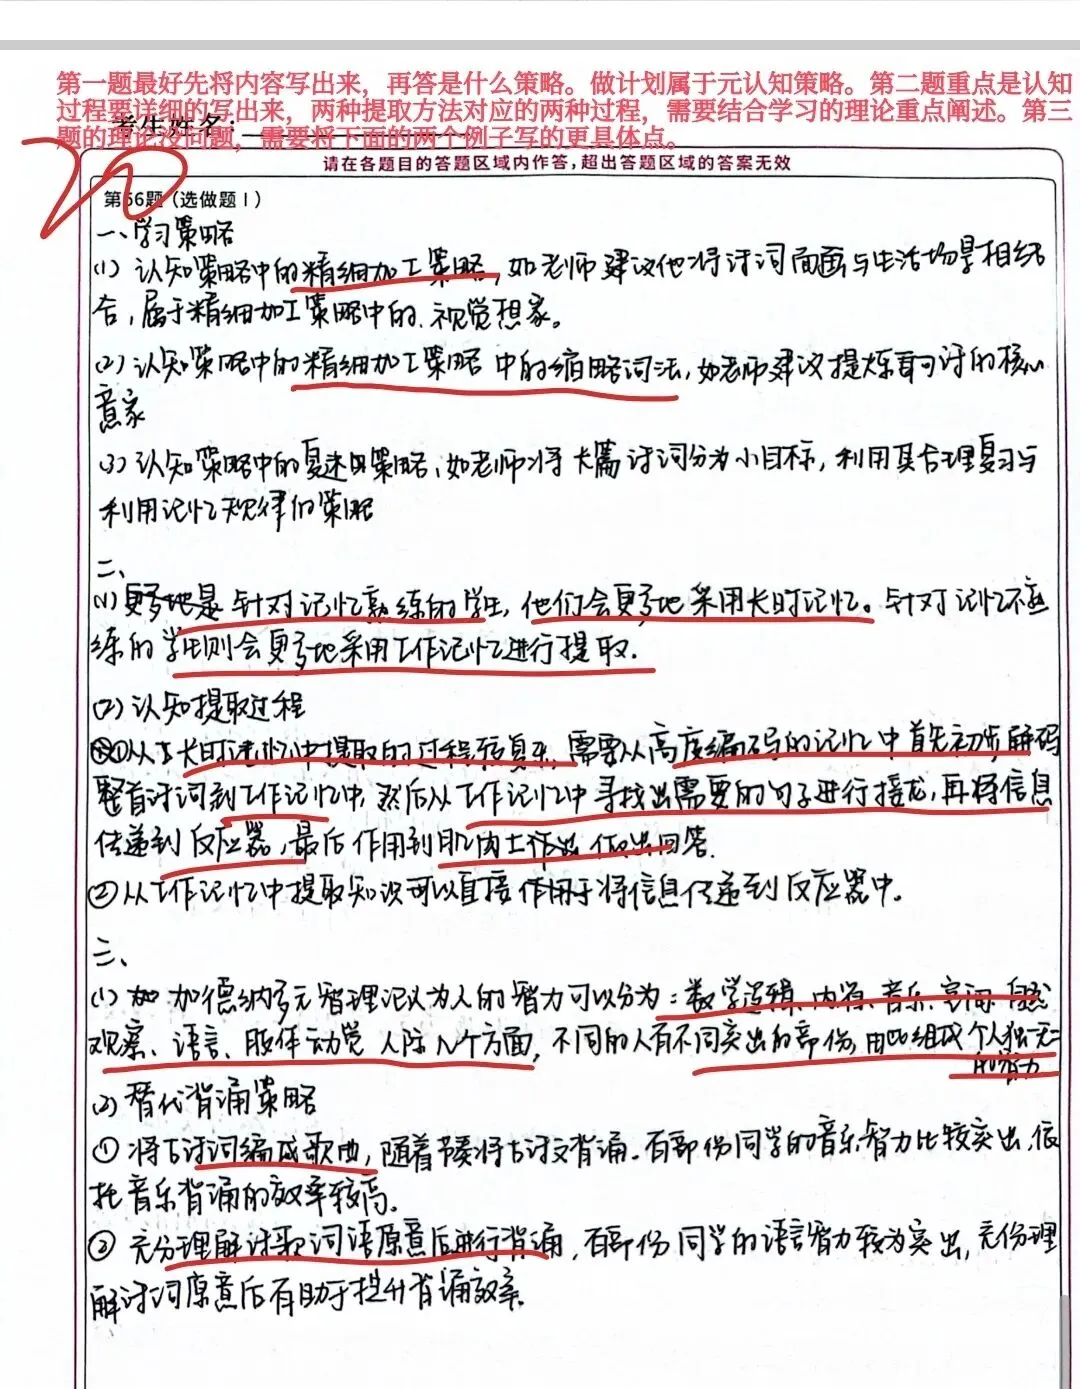 第一题最好先将内容写出来，再答是什么策略。做计划属于元认知策略。第二题重点是认知
过程要详细的写出来，两种提取方法对应的两种过程，需要结合学习的理论重点阐述。第三
题的理论没问题，需要将下面的两个例子写的更具体点。
考生姓名：
20
请在各题目的答题区域内作答，超出答题区域的答案无效
第56题（选做题Ⅰ）
一、学习策略
(1) 认知策略中的精细加工策略，如老师建议他将诗词画面与生活场景相结
合，属于精细加工策略中的视觉想象。
(2) 认知策略中的精细加工策略中的缩略词法，如老师建议提炼每句诗的核心
意象
(3) 认知策略中的复述策略，如老师将长篇诗词分为小目标，利用其合理复习与
利用记忆规律的策略
二、
(1) 更多地是针对记忆熟练的学生，他们会更多地采用长时记忆。针对记忆不熟
练的学生则会更多地采用工作记忆进行提取.
(2) 认知提取过程
①从长时记忆中提取的过程较复杂，需要从高度编码的记忆中首先初步解码
整首诗词到工作记忆中，然后从工作记忆中寻找出需要的句子进行接龙，再将信息
传递到反应器，最后作用到肌肉工作 做出回答.
②从工作记忆中提取知识可以直接作用于将信息传递到反应器中。
三、
(1) 加德纳多元智理认为人的智力可以分为：数学逻辑、内省、音乐、空间、自然
观察、语言、肢体动觉 人际八个方面，不同的人有不同突出的部份，由此组成个人独一无二
的智力
(2) 替代背诵策略
① 将古诗词编成歌曲，随着节奏将古诗文背诵. 有部份同学的音乐智力比较突出，依
托音乐背诵的效率较高.
② 充分理解诗歌词语原意后进行背诵，有部份同学的语言智力较为突出，充份理
解诗词原意后有助于提升背诵效率.